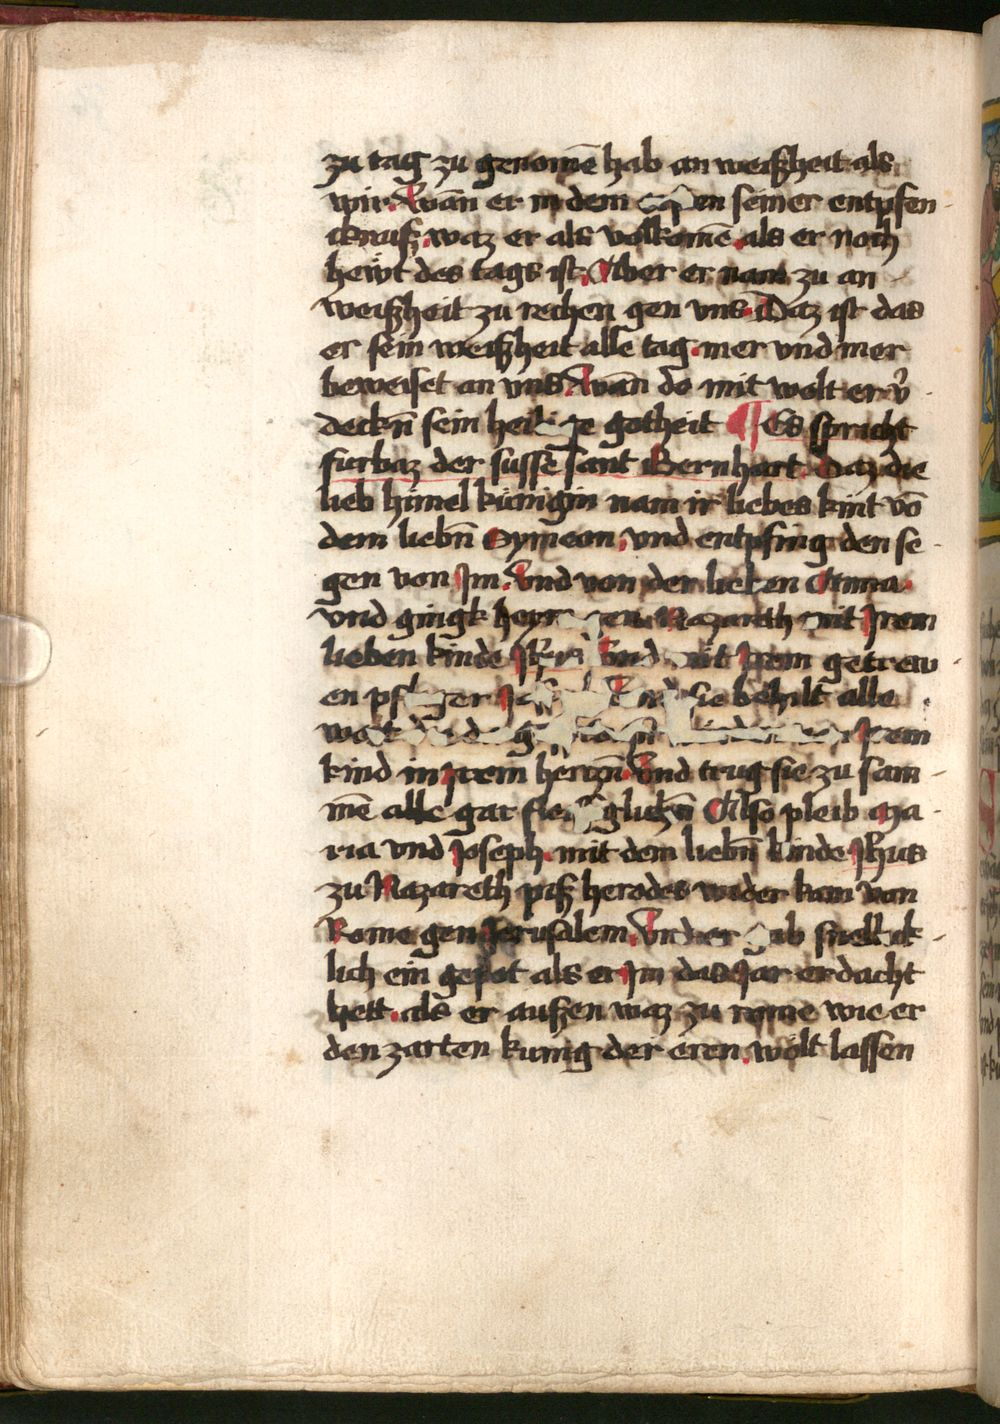 zu tag zu genomē hab an weißheit als
wir. Wān er in dem seiner entpfen-
cknuß. waz er als volkomē. als er noch
hewt des tags ist. Aber er nam zu an
weißheit zu rechen gen vns. Daz ist das
er sein weißheit alle tag. mer vnd mer
beweiset an vns. Wān do mit wolt er v̄-
deckn̄ sein heilige gotheit ¶ Es spricht
furbaz der sussē sant Bernhart. Daz die
lieb himel künigin nam ir liebes kint vō
dem liebn̄ Symeon. vnd entpfing den se-
gen von Jm. Vnd von der lieben Anna.
vnd gingk heym gen Nazareth mit Jrem
lieben kinde Vnd mit Jrem getrew-
en pfleger Vnd sie behilt alle
wort Jrem
kind in Jrem hertzn̄. Vnd trug sie zu sam-
mē alle gar Also pleib Ma-
ria vnd Joseph. mit dem liebn̄ kinde Jhus
zu Nazareth piß herodes wider kam von
Rome gen Jerusalem. Vnd er gab snellick-
lich ein gepot als er Jm das Jar erdacht
hett. als er außen waz zu rome wie er
den zarten kunig der eren. wolt lassen